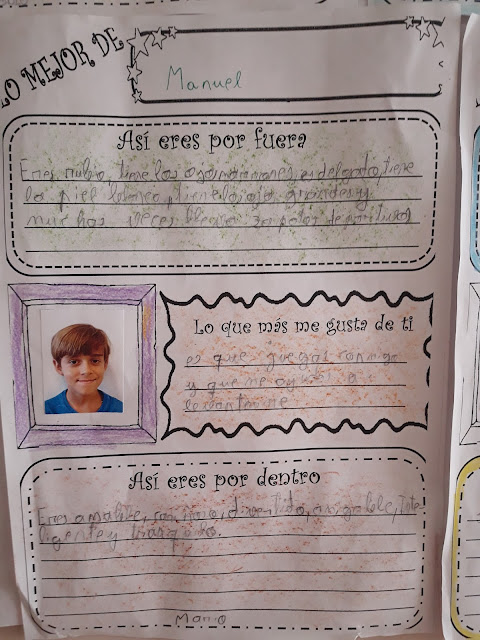 LO MEJOR DE
Manuel
Así eres por fuera
Eres rubio, tiene los ojos marrones, es delgado, tiene
la piel blanca, tiene los ojos grandes y
muchas veces lleva zapatos deportivos
Lo que más me gusta de ti
es que juegas conmigo
y que me ayudes a
levantarme
Así eres por dentro
Eres amable, cariñoso, divertido, amigable, inte
ligente y tranquilo.